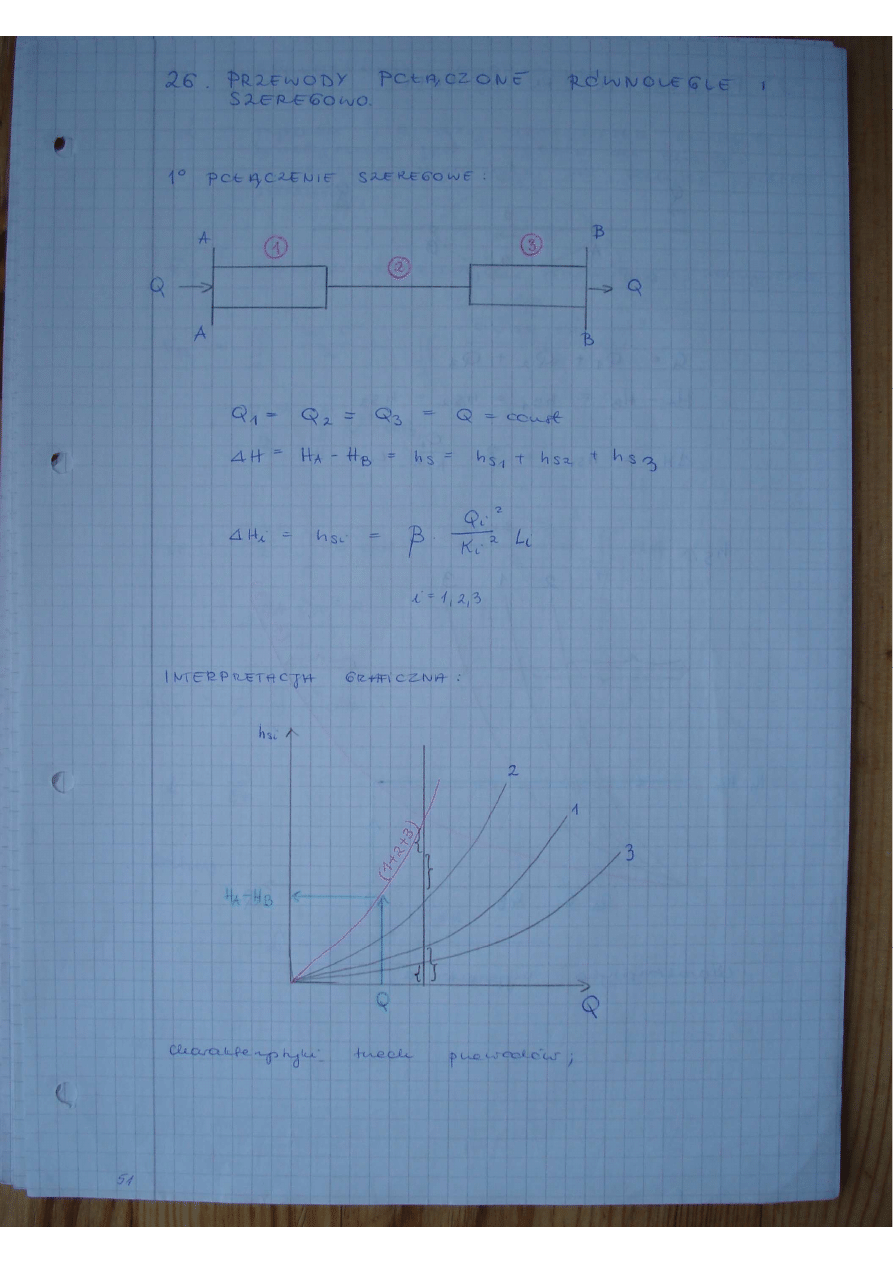 26. PRZEWODY POŁĄCZONE RÓWNOLEGLE I
SZEREGOWO.
1° POŁĄCZENIE SZEREGOWE:
A B
① ② ③
Q Q
A B
Q₁ = Q₂ = Q₃ = Q = const
ΔH = H_A - H_B = h_S = h_S1 + h_S2 + h_S3
ΔH_i = h_Si = β · Q_i² / K_i² L_i
i = 1, 2, 3
INTERPRETACJA GRAFICZNA:
h_Si
2
1
(1+2+3)
3
H_A - H_B
Q
Q
charakterystyki trzech przewodów;
51